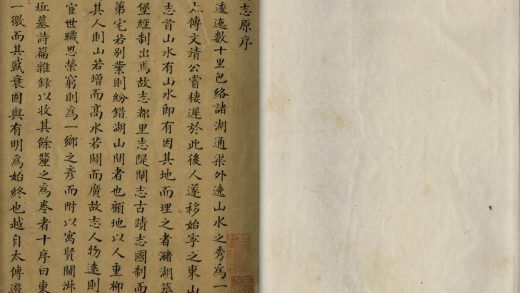 志原序
逶迤數十里包絡諸湖通渠外遶山水之秀爲一
傅文靖公嘗棲遲於此後人遂移始寧之東山
志首山水有山水即有因其地而理之者瀦湖築
堡經制出焉故志都里志隄閘志古蹟志國制而
第宅若別業則紛錯湖山間者也顧地以人重柳
其人則山若增而高水若闢而廣故志人物逺則
宣世職恩榮窮則爲一鄉之彥而附以寓賢閨淋
丘墓詩篇雜録以收其餘釐之爲卷者十序曰東
一徽而其盛衰固與有明爲始終也越自太傅遊